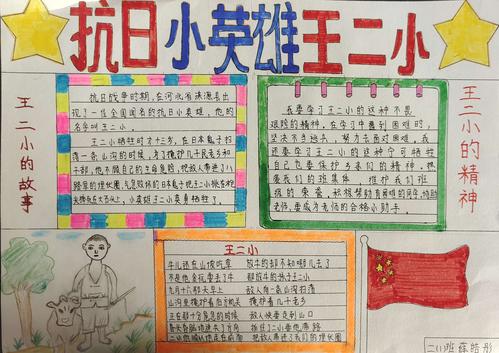 抗日小英雄王二小
王二小的故事
抗日战争时期,在河北省涞源县出
现了一位全国闻名的抗日小英雄,他的
名字叫王二小。
王二小牺牲时才十三岁,在日本鬼子扫
荡一条山沟的时候,为了掩护几千民乡和
干部,他不顾自己的生命危险,把敌人带进了八
路军的埋伏圈,气急败坏的日本鬼子把王二小挑在枪尖
王二小的精神
我要学习王二小的这种不畏
艰险的精神,在学习中遇到困难时,
坚决不当逃兵,努力去面对困难。我
还要学习王二小的这种宁可牺牲
自己也要保护乡亲们的精神,热
爱我们的班集体,维护我们班
级的荣誉,积极帮助有困难的同学,协助
老师,要成为老师的合格小助手。
王二小
牛儿还在山坡吃草 放牛的却不知哪儿去了
不是他贪玩耍丢了牛 那放牛的孩子王二小
九月十六那天早上 敌人向一条山沟扫荡
山沟里掩护着后方机关 掩护着几千老乡
正在那十分危急的时候 敌人快要走到山口
昏头昏脑地迷失了方向 抓住了二小要他带路
把敌人带进了我们的埋伏圈